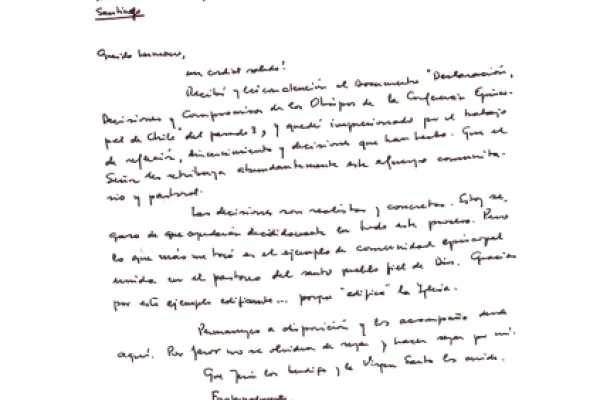 Santiago
Querido hermano,
un cordial saludo!
Recibí y leí con atención el Documento "Declaración,
Decisiones y Compromisos de los Obispos de la Conferencia Episco-
pal de Chile" del pasado 3, y quedé impresionado por el trabajo
de reflexión, discernimiento y decisiones que han hecho. Que el
Señor les retribuya abundantemente este esfuerzo comunita-
rio y pastoral.
Las decisiones son realistas y concretas. Estoy se-
guro de que ayudarán decididamente en todo este proceso. Pero
lo que más me tocó es el ejemplo de comunidad episcopal
unida en el pastoreo del santo pueblo fiel de Dios. Gracias
por este ejemplo edificante... porque "edifica" la Iglesia.
Permanezco a disposición y los acompaño desde
aquí. Por favor no se olviden de rezar y hacer rezar por mí.
Que Jesús los bendiga y la Virgen Santa los cuide.
Fraternalmente